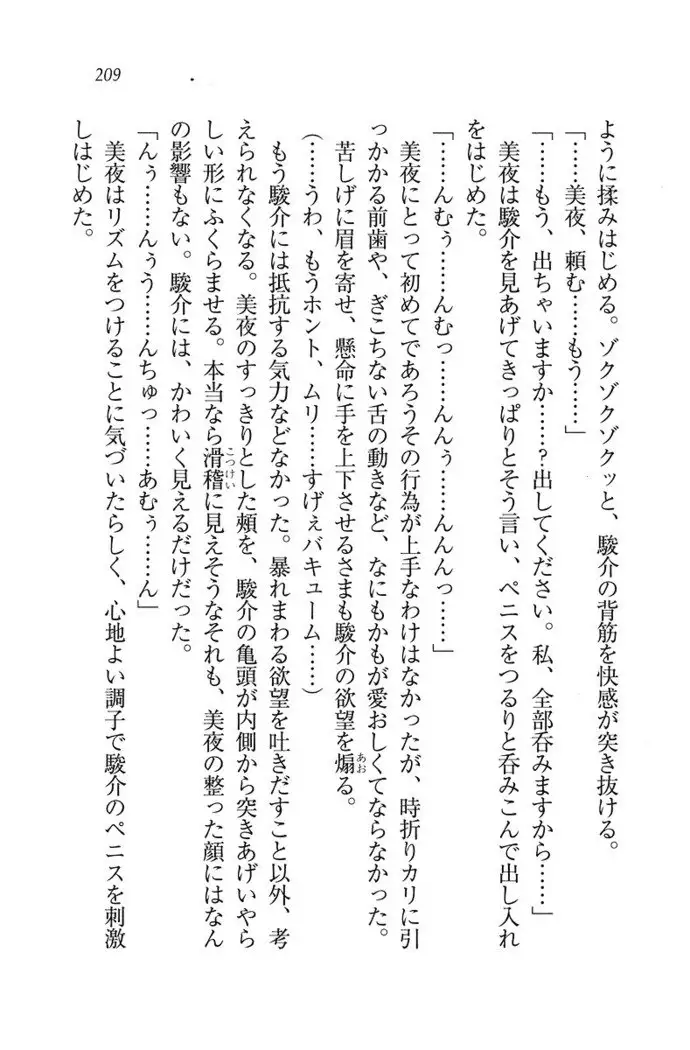 209
ように揉みはじめる。ゾクゾクゾクッと、駿介の背筋を快感が突き抜ける。
「……美夜、頼む……もう……」
「……もう、出ちゃいますか……？出してください。私、全部呑みますから……」
美夜は駿介を見あげてきっぱりとそう言い、ペニスをつるりと呑みこんで出し入れ
をはじめた。
「……んむぅ……んむっ……んんぅ……んんんっ……」
美夜にとって初めてであろうその行為が上手なわけはなかったが、時折りカリに引
っかかる前歯や、ぎこちない舌の動きなど、なにもかもが愛おしくてならなかった。
苦しげに眉を寄せ、懸命に手を上下させるさまも駿介の欲望を煽る。
（……うわ、もうホント、ムリ……すげぇバキューム……）
もう駿介には抵抗する気力などなかった。暴れまわる欲望を吐きだすこと以外、考
えられなくなる。美夜のすっきりとした頰を、駿介の亀頭が内側から突きあげいやら
しい形にふくらませる。本当なら滑稽に見えそうなそれも、美夜の整った顔にはなん
の影響もない。駿介には、かわいく見えるだけだった。
「んぅ……んぅう……んちゅっ……あむぅ……ん」
美夜はリズムをつけることに気づいたらしく、心地よい調子で駿介のペニスを刺激
しはじめた。
こっけい
あお